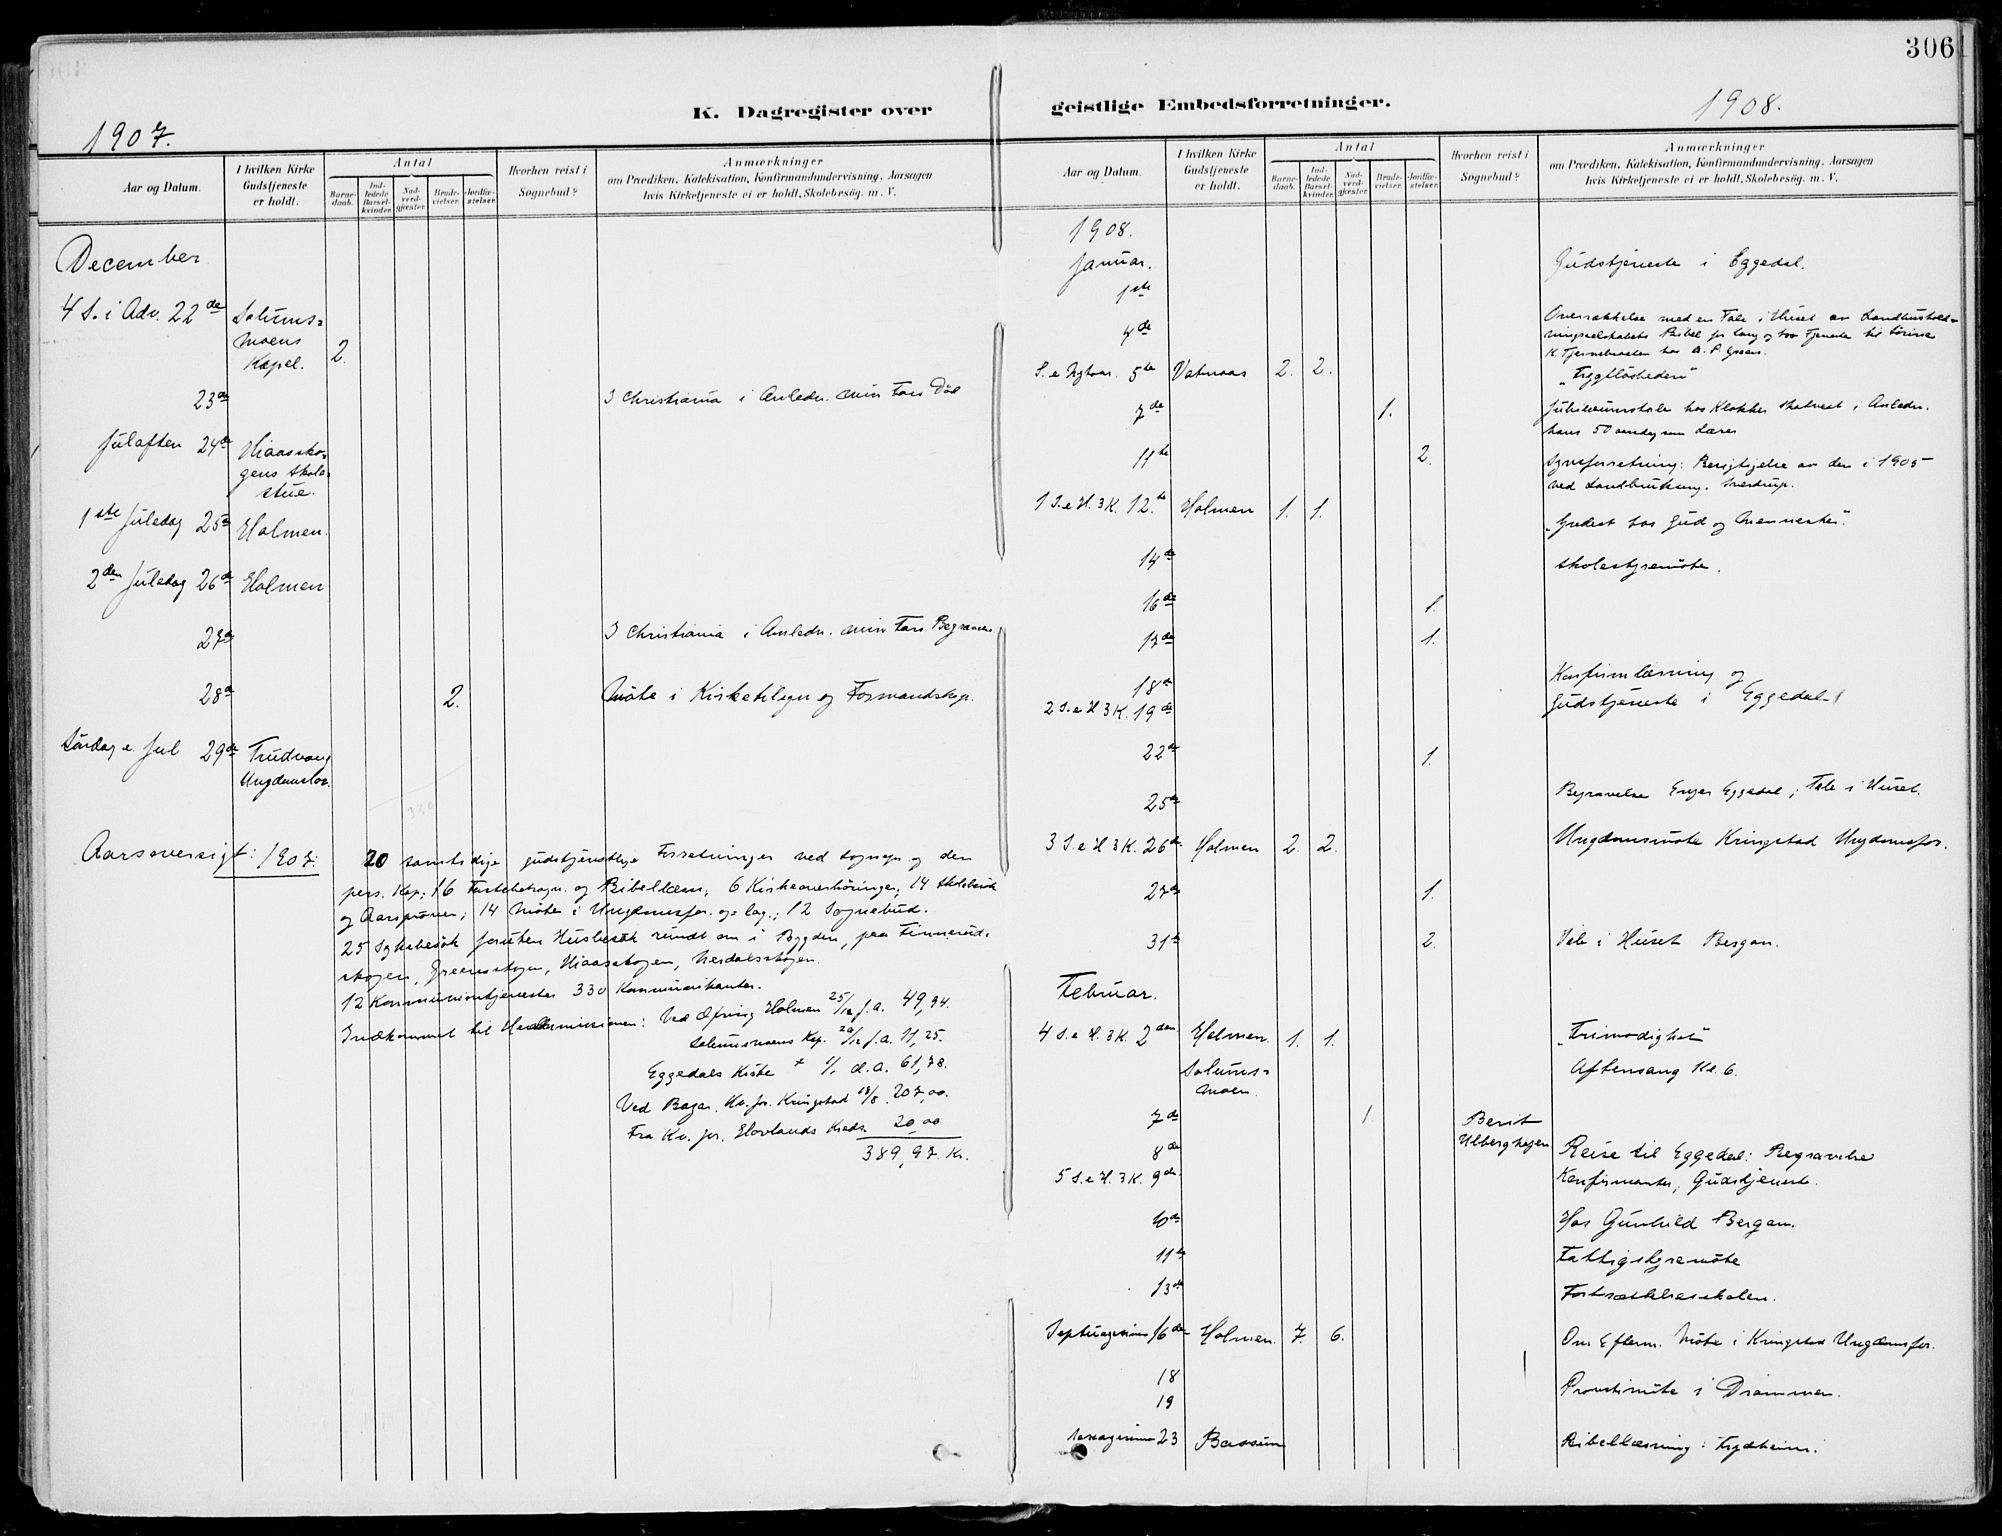 306
K. Dagregister over
1907.
Aar og Datum.
I hvilken Kirke
Gudstjeneste
er holdt.
Antal
Barne-
daab.
Ind-
ledede
Barsel-
kvinder.
Nad-
verd-
gjester.
Brude-
vielser.
Jordfæ-
stelser.
Hvorhen reist i
Sognebud?
Anmærkninger
om Prædiken, Katekisation, Konfirmandundervisning, Aarsagen
hvis Kirketjeneste ei er holdt, Skolebesøg. m. V.
December
4 S. i Adv. 22de Solums-
moens
Kapel. 2.
23de I Christiania i Anledn. min Fars Död
Juleaften 24de
gens Skole-
stue.
1ste Juledag 25de Holmen.
2den Juledag 26de Holmen
27de I Christiania i Anledn. min Fars
28de 2. Möte i Kirketilsyn og Formandskap.
Söndag e. Jul 29de Trudvang
Ungdomslok.
330
Aarsoversigt: 1907: 20 samtidige gudstjenstlige Forretninger ved sognepr. og den
pers. Kap; 16 og Bibellæsn; 6 Kirkeoverhöringer; 14 Skolebesök
og Aarspröver; 14 Möter i Ungdomsfor. og lag.; 12 Sognebud.
25 Sykebesök foruten Husbesök rundt om i Bygden, paa Finnerud-
skogen, Greensskogen,
12 Kommuniontjenester 330 Kommunikanter.
Indkommet til Hedningemissionen: Ved Ofring Holmen 25/12 f.a. 49,94.
Solumsmoens Kap. f.a. 11,25.
Eggedals Kirke + 1/1 d.a. 61,78.
Ved Bazar. Kv. for. Kringstad 18/8 207,00.
Fra Kv. for. Hovlands Kreds. 20,00
389,97. Kr.
geistlige Embedsforretninger.
1908.
Aar og Datum.
I hvilken Kirke
Gudstjeneste
er holdt.
Antal
Barne-
daab.
Ind-
ledede
Barsel-
kvinder.
Nad-
verd-
gjester.
Brude-
vielser.
Jordfæ-
stelser.
Hvorhen reist i
Sognebud?
Anmærkninger
om Prædiken, Katekisation, Konfirmandundervisning, Aarsagen
hvis Kirketjeneste ei er holdt, Skolebesøg. m. V.
1908.
Januar.
1ste Gudstjeneste i Eggedal.
4de Overrækkelse med en Tale i Huset av Landhushold-
ningsselskabets Pokal for lang og tro Tjeneste til
K. hos A. P. Green.
S. e. Nytaar. 5te Vatnaas 2. 2. „Frygtlösheden"
7de 1. Jubilæumstale hos Klokker Skatvedt i Anledn.
hans 50 aarsdag som Lærer
11te 2. Synsforretning: Berigtigelse av den i 1905
ved Landbruksing. Sverdrup.
1 S. e. H. 3 K. 12.te Holmen 1. 1. „Yndest hos Gud og Mennesker".
14de Skolestyremöte.
16de 1.
17de 1.
18de Konfirm.læsning og
2 S. e H 3 K. 19de Gudstjeneste i Eggedal
22de 1.
25de Begravelse Enger Eggedal; Tale i Huset.
3 S. e H 3 K. 26de. Holmen 2. 2. Ungdomsmöte Kringstad Ungdomsfor.
27de 1.
31te 2. Tale i Huset Bergan.
Februar.
4 S. e H. 3 K. 2den Holmen. 1. 1. „Frimodighet"
Solums-
moen. Aftensang Kl. 6.
7de 1 Berit
Ulberghagen
8de Reise til Eggedal: Begravelse
5 S. e H. 3 K. 9de. Konfirmanter, Gudstjeneste.
10de Hos Gunhild Bergan.
11te Fattigstyremöte
13de Fortsættelsesskolen.
Septuagesima 16de Holmen. 7. 6. Om Efterm. Möte i Kringstad Ungdomsfor.
18 Provstimöte i Drammen.
19
Sexagesima 23 Bibellæsning i Frydheim.